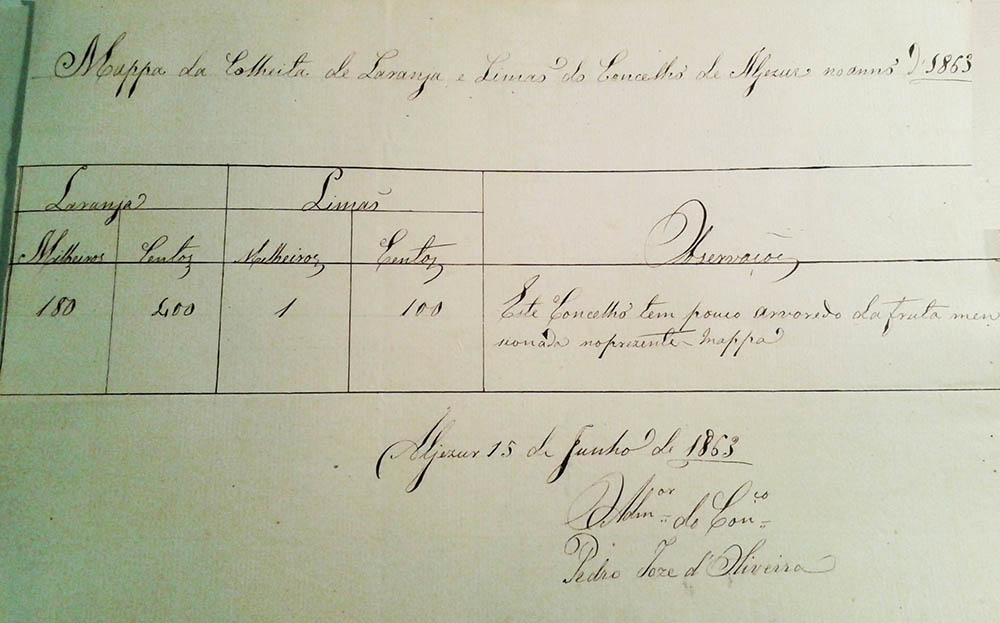 Mappa da Colheita de Laranja e Limas do Concelho de Aljezur no anno d'1863
Laranja Limas
Milheiros Centos Milheiros Centos Observações
180 400 1 100 Este Concelho tem pouco arvoredo da fruta men
sionada no prezente Mappa
Aljezur 15 de Junho de 1863
O Adm.or do Con.co
Pedro Joze d'Oliveira